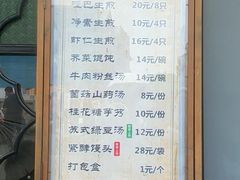 生煎 20元/8只
净素生煎 10元/4只
虾仁生煎 16元/4只
荠菜馄饨 14元/碗
牛肉粉丝汤 14元/碗
菌菇山药汤 8元/份
桂花糖芋艿 10元/份
苏式绿豆汤 12元/份
紧酵馒头 28元/袋
打包盒 1元/个